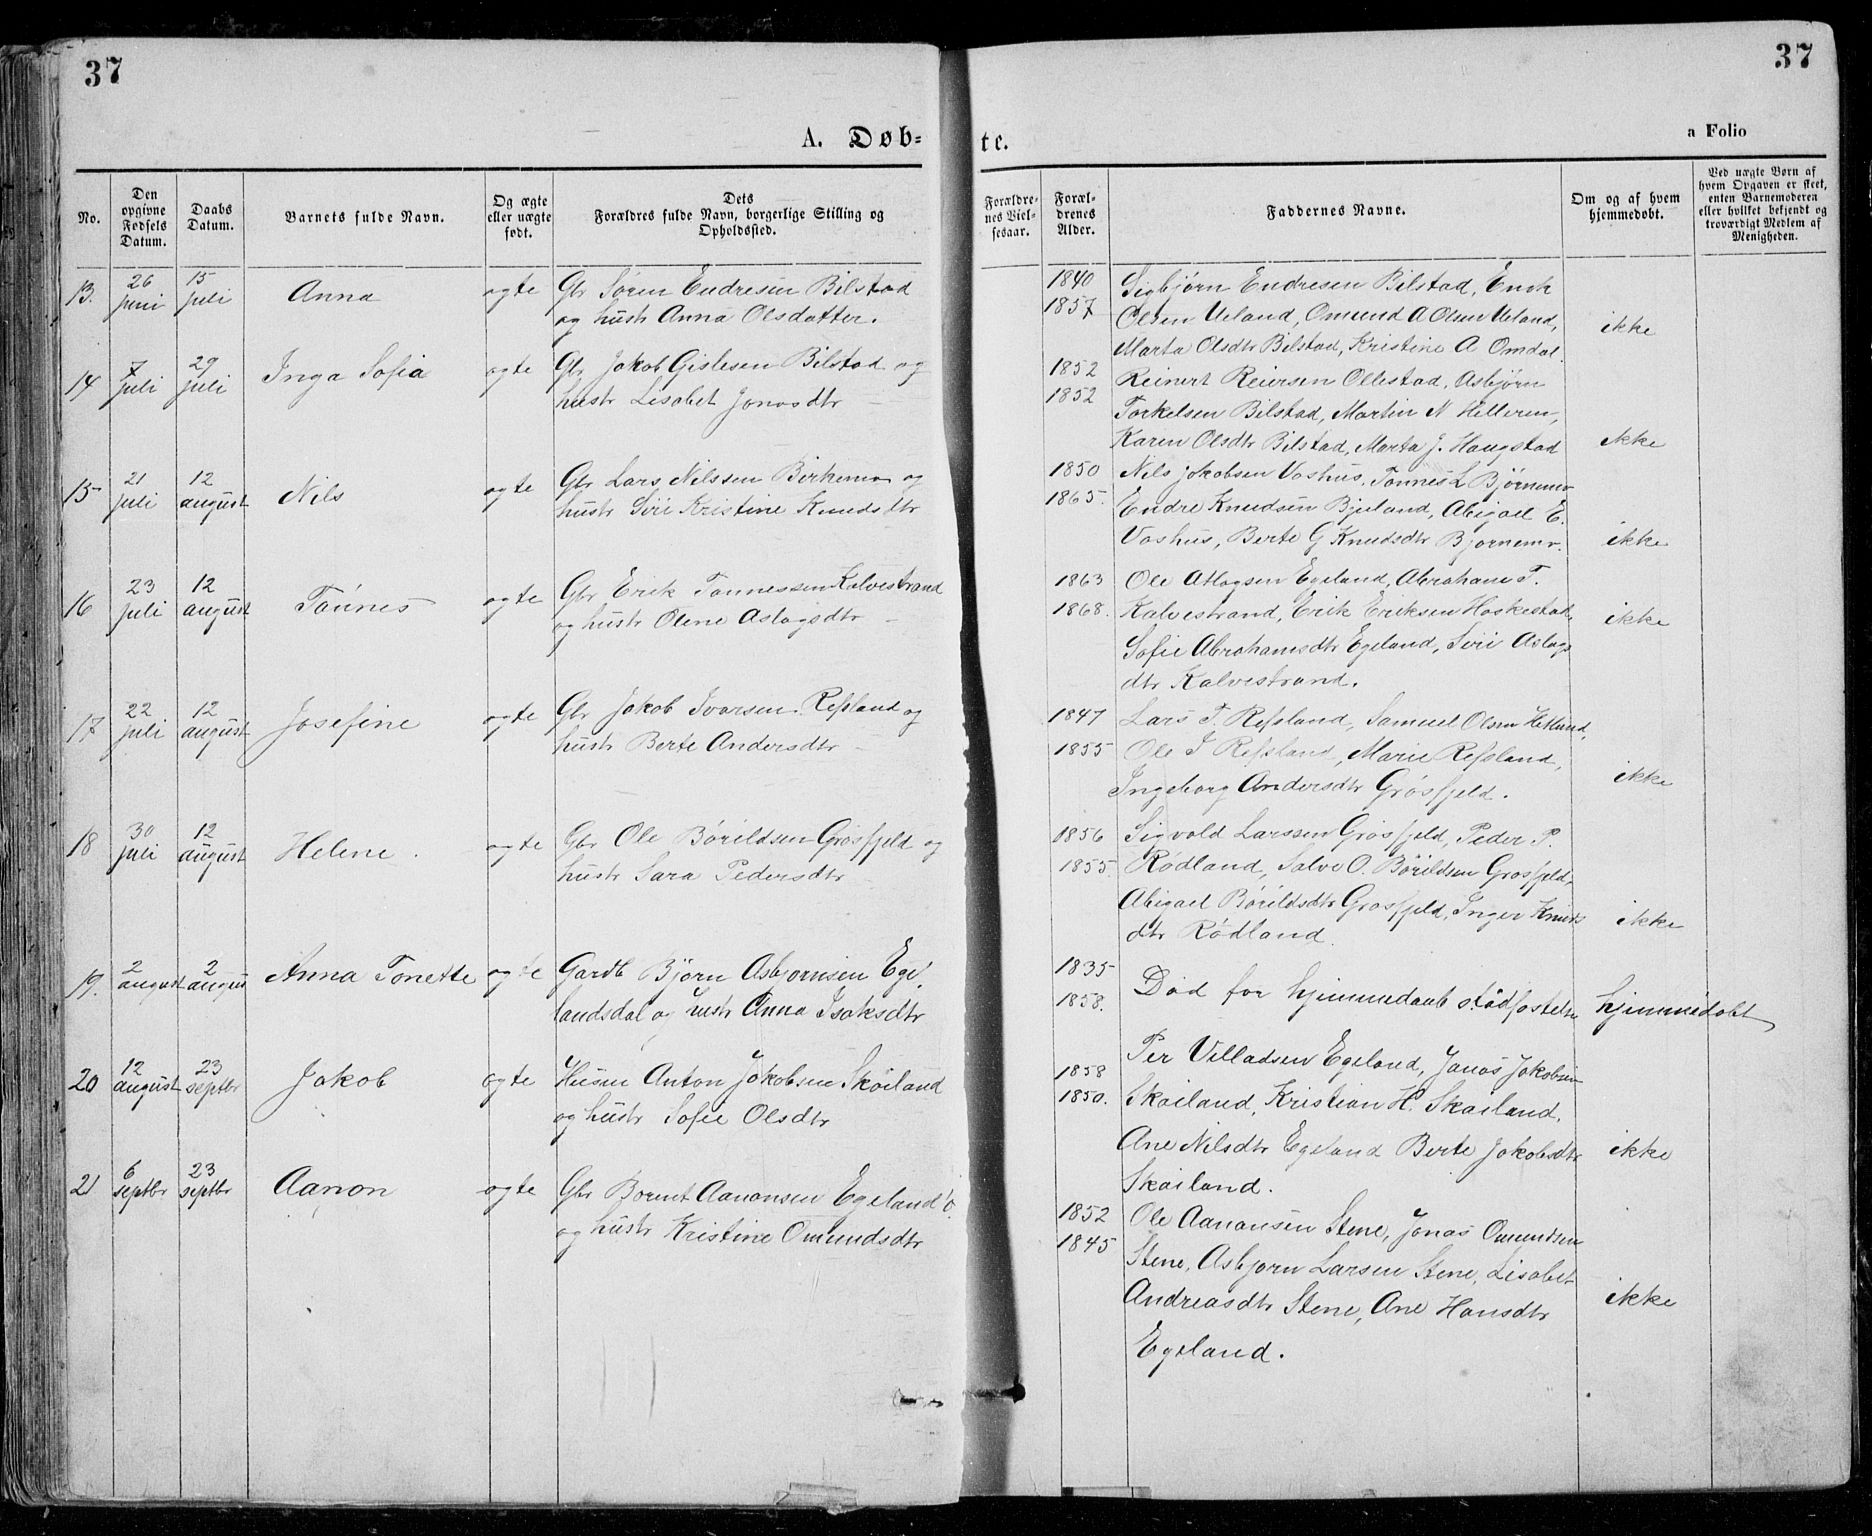 37
37
A. Døb-
te.
a Folio
No.
Den opgivne Fødsels Datum.
Daabs Datum.
Barnets fulde Navn.
Og ægte eller uægte født.
Dets Forældres fulde Navn, borgerlige Stilling og Opholdssted.
Forældrenes Vielsesaar.
Forældrenes Alder.
Faddernes Navne.
Om og af hvem hjemmedøbt.
Ved uægte Børn af hvem Opgaven er skeet, enten Barnemoderen eller hvilket bekjendt og troværdigt Medlem af Menigheden.
13. 26 juni 15 juli Anna ægte Gbr Søren Endresen Bilstad
og hustr Anna Olsdatter.
1840
1857
Sigbjørn Endresen Bilstad,
Olsen Ueland, Omund A Olsen Ueland,
Marta Olsdtr Bilstad, Kristine A Omdal.
ikke
14 7 juli 29 juli Inga Sofia ægte Gbr Jakob Gislesen Bilstad og
hustr Lisabet Jonasdtr
1852
1852
Reinert Reiersen Ollestad, Asbjørn
Torkelsen Bilstad, Martin N Helleren,
Karen Olsdtr Bilstad, Marta J. Haugstad
ikke
15 21 juli 12 august Nils ægte Gbr Lars Nilssen og
hustr Siri Kristine Knudsdtr
1850
1865.
Nils Jakobsen Vashus, Tønnes L
Endre Knudsen Bjuland, Abigael E.
Vashus, Berte G Knudsdtr
ikke
16 23 juli 12 august Tønnes ægte Gbr Erik Tønnessen Kalvestrand
og hustr Olene Aslagsdtr
1863
1868.
Ole Atlagsen Egeland, Abraham T.
Kalvestrand, Erik Eriksen
Sofie Abrahamsdtr Egeland, Siri Aslags
dtr Kalvestrand.
ikke
17 22 juli 12 august Josefine ægte Gbr Jakob Ivarsen Refsland og
hustr Berte Andersdtr
1847
1855
Lars T. Refsland, Samuel Olsen Hetland,
Ole I Refsland, Marie Refsland,
Ingeborg Andersdtr Grøsfjeld.
ikke
18 30 juli 12 august Helene ægte Gbr Ole Børildsen Grøsfjeld og
hustr Sara Pedersdtr
1856
1855.
Sigvald Larssen Grøsfjeld, Peder P.
Rødland, Salve O. Børildsen Grøsfjeld,
Abigael Børildsdtr Grøsfjeld, Inger Knuds
dtr Rødland.
ikke
19. 2 august 2 august Anna Tonette ægte Gardb Bjørn Asbjørnsen Ege-
landsdal og hustr Anna Isaksdtr
1835
1858.
Død før hjemmedaab
hjemmedøbt
20 12 august 23 septbr Jakob ægte Husm Anton Jakobsen Skøiland
og hustr Sofie Olsdtr
1858
1850.
Per Villadsen Egeland, Janas Jakobsen
Skøiland, Kristian H. Skøiland,
Ane Nilsdtr Egeland Berte Jakobsdtr
Skøiland.
ikke
21 6 septbr 23 septbr Aanon ægte Gbr Bernt Aanonsen Egeland
og hustr Kristine Omundsdtr
1852
1845
Ole Aanonsen Stene, Jonas Omundsen
Stene, Asbjørn Larsen Stene, Lisabet
Andreasdtr Stene, Ane Hansdtr
Egeland.
ikke